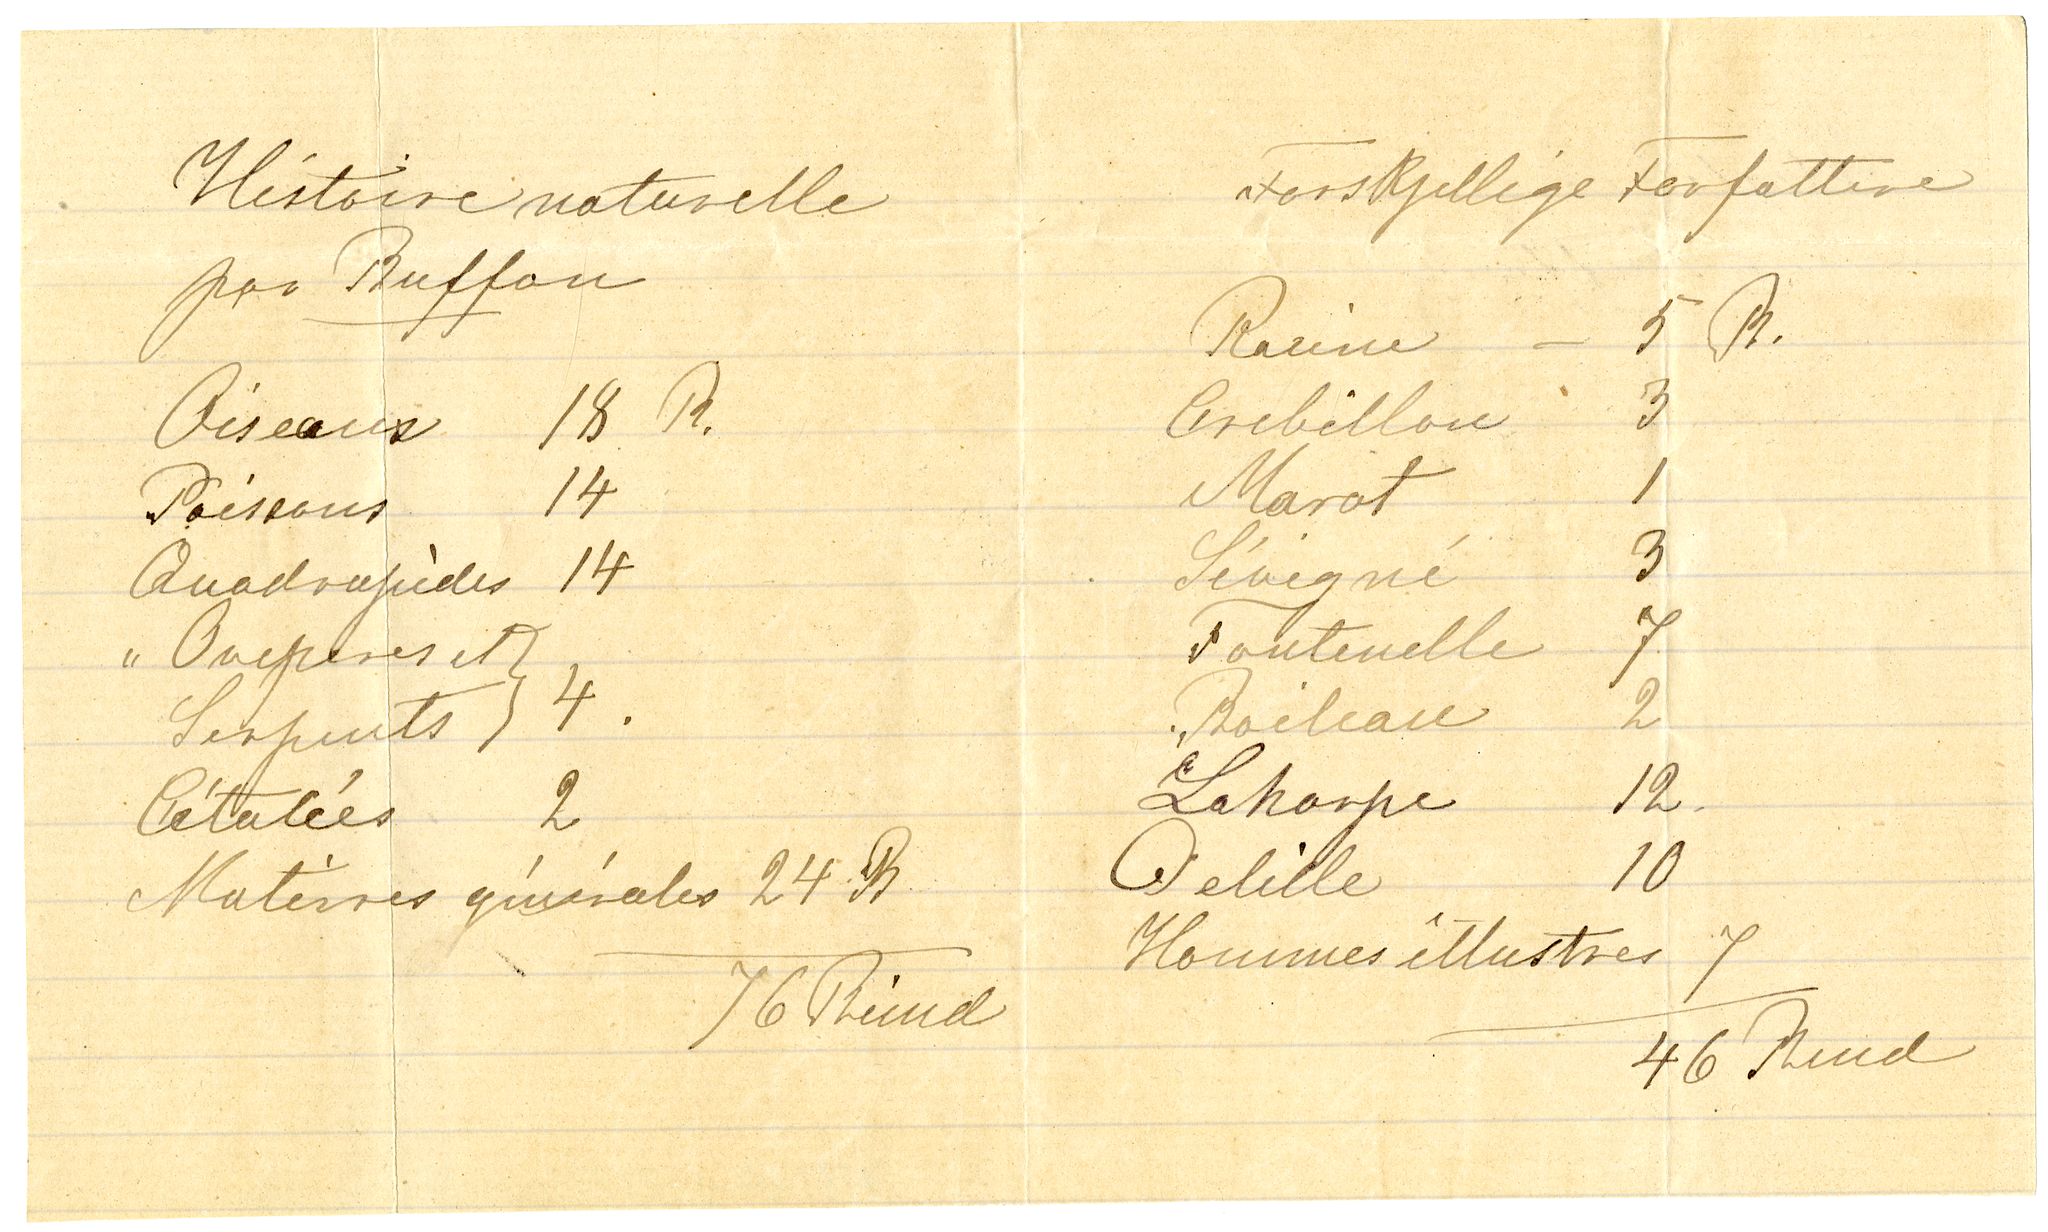 Histoire naturelle
par Buffon
Oiseaux 18 B.
Poissons 14
Quadrupèdes 14
" Ovepares et }
Serpents } 4.
Cétacées 2
Matières générales 24 B
76 Bind
Forskjellige Forfattere
Racine — 5 B.
Crebillon 3
Marot 1
Sévigné 3
Fontenelle 7
Boileau 2
Laharpe 12.
Delille 10
Hommes illustres 7
46 Bind